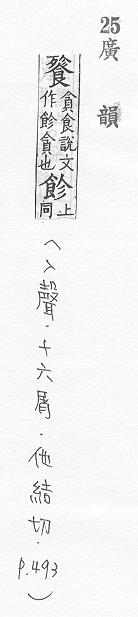 25 廣韻
餮貪食說文作飻貪也飻上同
（入聲．十六屑．他結切．p.493）